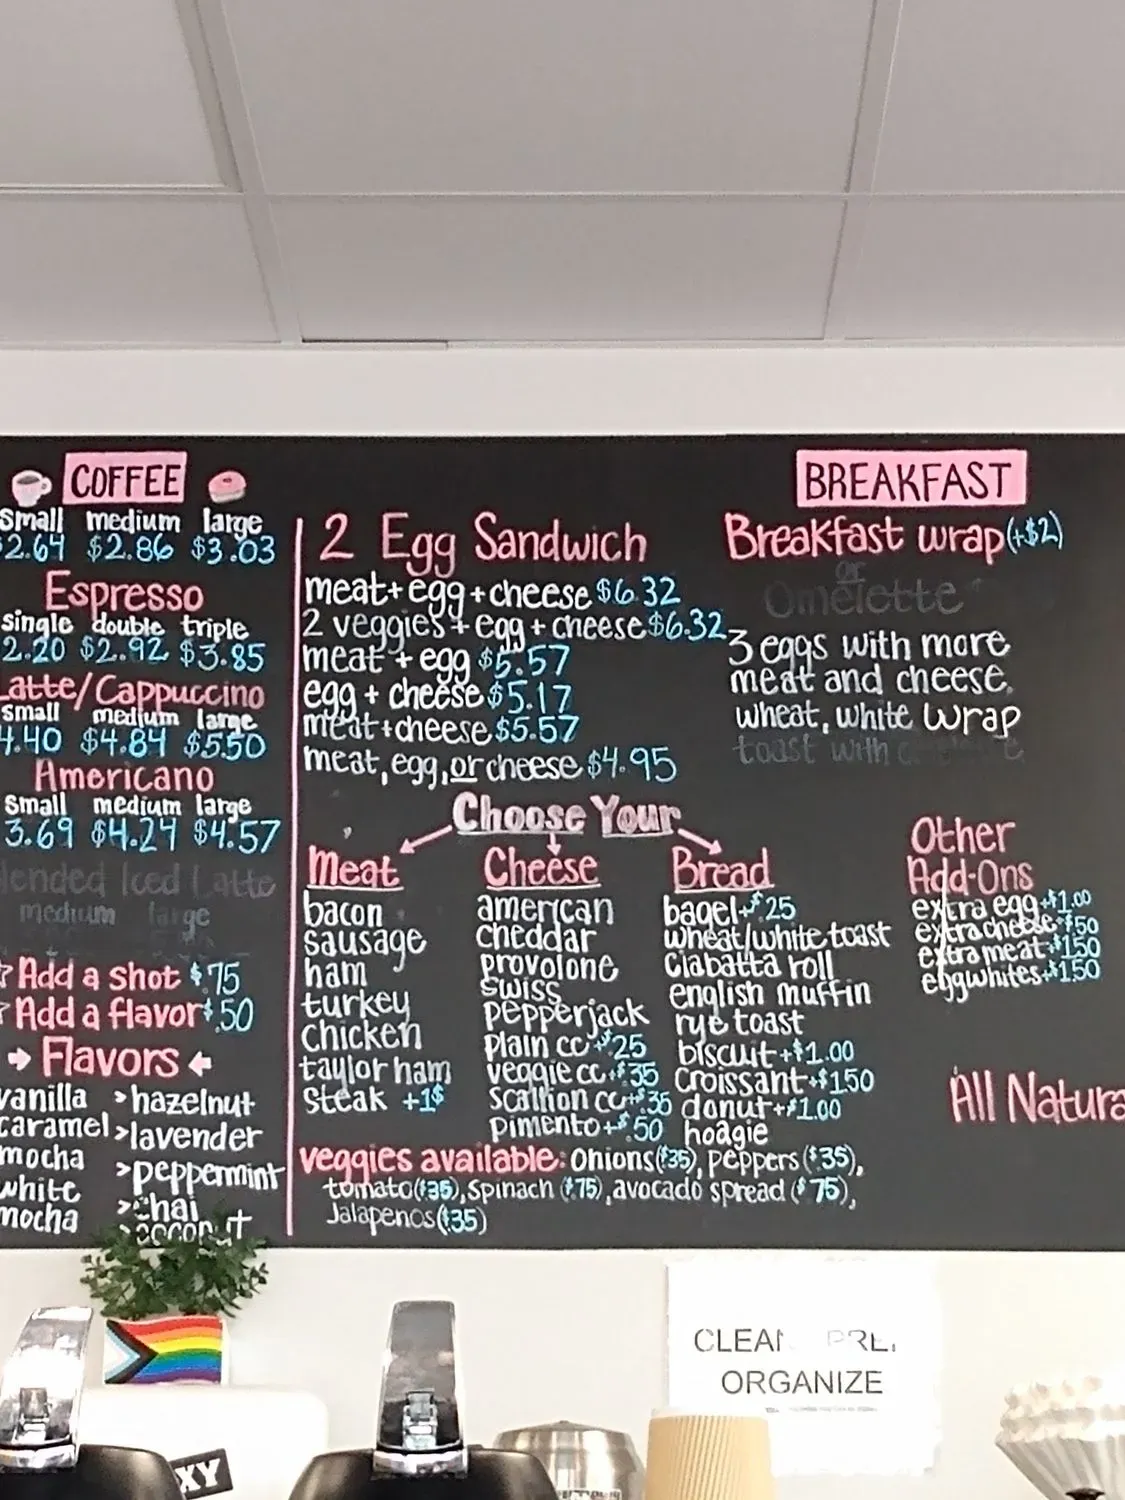 COFFEE
small medium large
2.64 $2.86 $3.03
Espresso
single double triple
2.20 $2.92 $3.85
Latte/Cappuccino
small medium large
4.40 $4.84 $5.50
Americano
small medium large
3.69 $4.24 $4.57
lended Iced Latte
medium large
Add a shot $.75
Add a flavor $.50
Flavors
vanilla
caramel
mocha
white
mocha
>hazelnut
>lavender
>peppermint
>chai
>coconut
2 Egg Sandwich
meat+egg+cheese $6.32
2 veggies + egg + cheese $6.32
meat + egg $5.57
egg + cheese $5.17
meat+cheese $5.57
meat, egg, or cheese $4.95
Choose Your
Meat
bacon
sausage
ham
turkey
chicken
taylor ham
steak +1$
Cheese
american
cheddar
provolone
swiss
pepperjack
plain cc+$.25
veggie cc+$.35
scallion cc+$.35
pimento+$.50
Bread
bagel+$.25
wheat/white toast
ciabatta roll
english muffin
rye toast
biscuit+$1.00
croissant+$1.50
donut+$1.00
hoagie
veggies available: onions($.35), peppers($.35),
tomato($.35), spinach ($.75), avocado spread ($.75),
Jalapenos($.35)
BREAKFAST
Breakfast wrap(+$2)
or
Omelette
3 eggs with more
meat and cheese.
wheat, white wrap
toast with
Other
Add-Ons
extra egg+$1.00
extra cheese+$.50
extra meat+$1.50
egg whites+$1.50
All Natura
ORGANIZE
XY